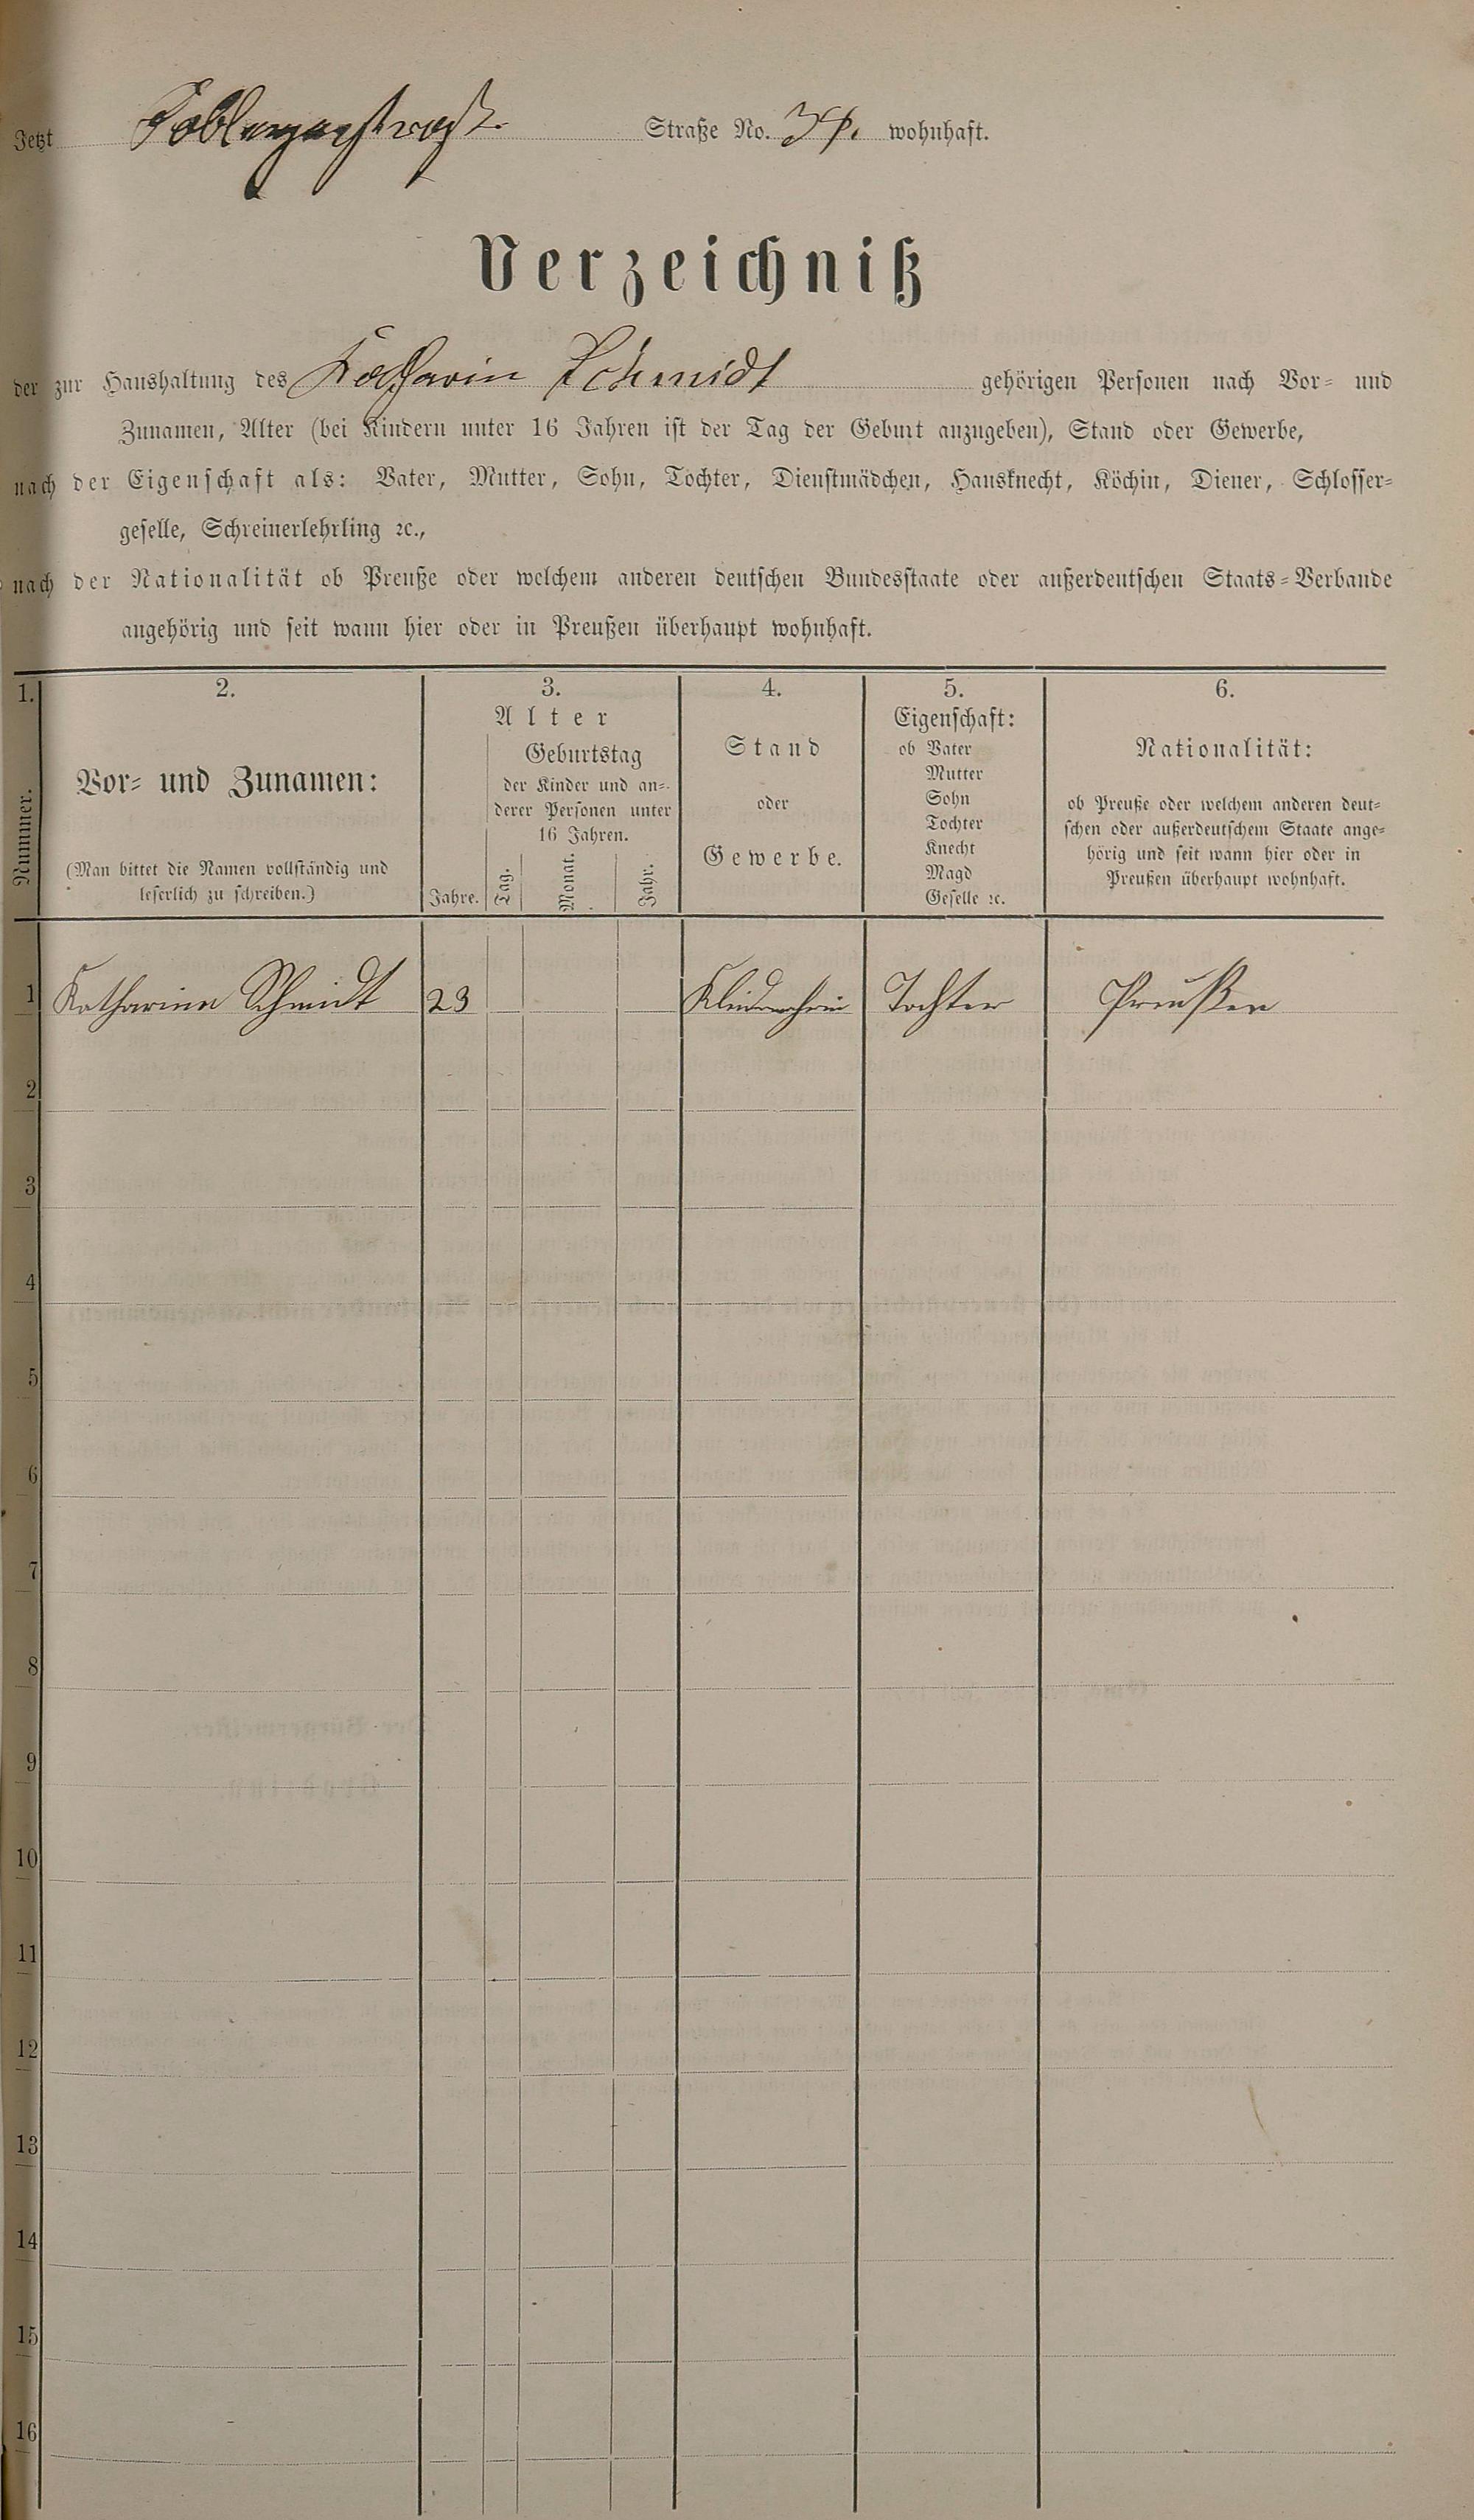 Jetzt Coblenzerstraße Straße No. 34. wohnhaft.
Verzeichniß
der zur Haushaltung des Katharin Schmidt gehörigen Personen nach Vor- und
Zunamen, Alter (bei Kindern unter 16 Jahren ist der Tag der Geburt anzugeben), Stand oder Gewerbe,
nach der Eigenschaft als: Vater, Mutter, Sohn, Tochter, Dienstmädchen, Hausknecht, Köchin, Diener, Schlosser-
geselle, Schreinerlehrling ꝛc.,
nach der Nationalität ob Preuße oder welchem anderen deutschen Bundesstaate oder außerdeutschen Staats-Verbande
angehörig und seit wann hier oder in Preußen überhaupt wohnhaft.
1.
Nummer.
2.
Vor- und Zunamen:
(Man bittet die Namen vollständig und
leserlich zu schreiben.)
3.
Alter
Jahre.
Geburtstag
der Kinder und an-
derer Personen unter
16 Jahren.
Tag.
Monat.
Jahr.
4.
Stand
oder
Gewerbe.
5.
Eigenschaft:
ob Vater
Mutter
Sohn
Tochter
Knecht
Magd
Geselle ꝛc.
6.
Nationalität:
ob Preuße oder welchem anderen deut-
schen oder außerdeutschem Staate ange-
hörig und seit wann hier oder in
Preußen überhaupt wohnhaft.
1 Katharina Schmidt 23 Tochter Preußen
2
3
4
5
6
7
8
9
10
11
12
13
14
15
16